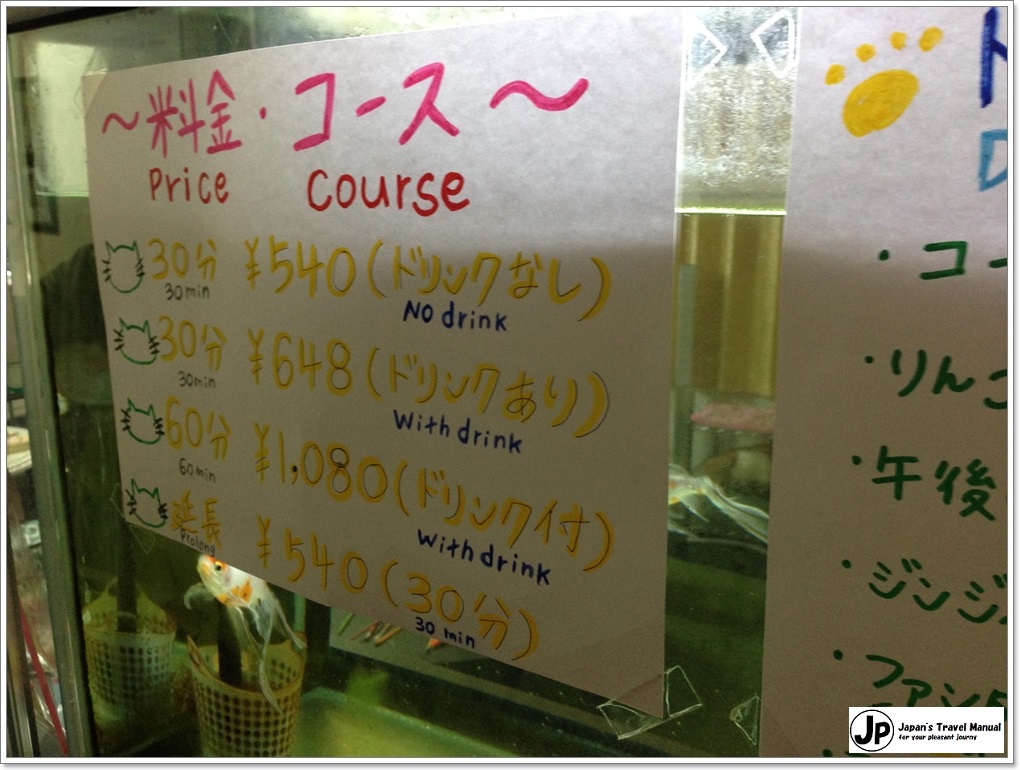 ～料金・コース～
Price Course
30分 ¥540(ドリンクなし)
30min No drink
30分 ¥648(ドリンクあり)
30min With drink
60分 ¥1,080(ドリンク付)
60min With drink
延長 ¥540(30分)
Prolong 30 min
・コー
・りんご
午後
・ジンジ
・ファンタ
JP Japan's Travel Manual
for your pleasant journy